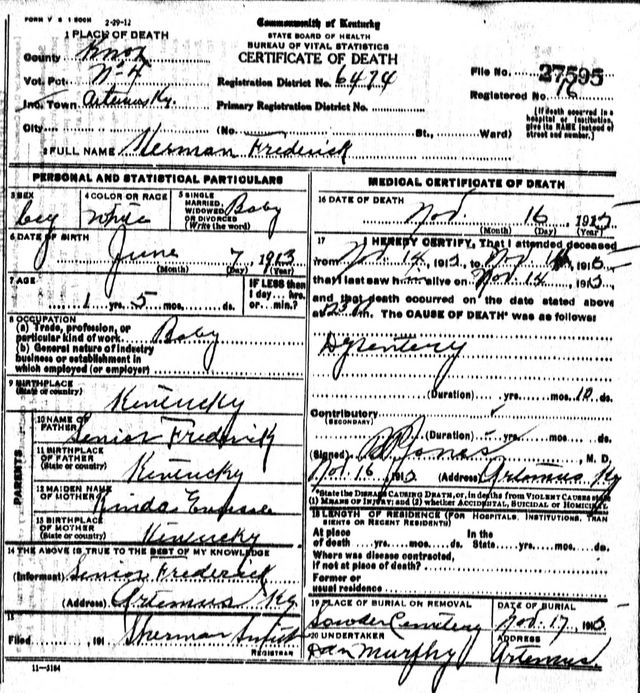 FORM V S 1 500M 2-29-12
Commonwealth of Kentucky
STATE BOARD OF HEALTH
BUREAU OF VITAL STATISTICS
CERTIFICATE OF DEATH
1 PLACE OF DEATH
County Knox
Vot. Pct. N-4
Inc. Town Artemus Ky.
City
Registration District No. 6474
Primary Registration District No.
(No. St., Ward)
File No. 27595
Registered No. 76
[If death occurred in a hospital or institution, give its NAME instead of street and number.]
2 FULL NAME Herman Frederick
PERSONAL AND STATISTICAL PARTICULARS
3 SEX boy
4 COLOR OR RACE White
5 SINGLE MARRIED, WIDOWED OR DIVORCED (Write the word) Baby
6 DATE OF BIRTH June 7, 1913
(Month) (Day) (Year)
7 AGE 1 yrs. 5 mos. ds.
IF LESS than 1 day... hrs. or... min.?
8 OCCUPATION
(a) Trade, profession, or particular kind of work. Baby
(b) General nature of industry business or establishment in which employed (or employer)
9 BIRTHPLACE (State or country) Kentucky
PARENTS
10 NAME OF FATHER Senior Frederick
11 BIRTHPLACE OF FATHER (State or country) Kentucky
12 MAIDEN NAME OF MOTHER
13 BIRTHPLACE OF MOTHER (State or country) Kentucky
14 THE ABOVE IS TRUE TO THE BEST OF MY KNOWLEDGE
(Informant) Senior Frederick
(Address) Artemus Ky
15
Filed , 191 Sherman
REGISTRAR
11-5184
MEDICAL CERTIFICATE OF DEATH
16 DATE OF DEATH
Nov. 16, 1915
(Month) (Day) (Year)
17 I HEREBY CERTIFY, That I attended deceased
from Nov 14, 1915, to Nov 16, 1915
that I last saw him alive on Nov 14, 1915
and that death occurred on the date stated above
at m. The CAUSE OF DEATH* was as follows:
Dyzentery
(Duration) yrs. mos. 10 ds.
Contributory
(SECONDARY)
(Duration) yrs. mos. ds.
(Signed) Jones M. D.
Nov 16, 1915 (Address) Artemus Ky
*State the DISEASE CAUSING DEATH, or, in deaths from VIOLENT CAUSES state (1) MEANS OF INJURY; and (2) whether ACCIDENTAL, SUICIDAL or HOMICIDAL
18 LENGTH OF RESIDENCE (FOR HOSPITALS, INSTITUTIONS, TRANSIENTS OR RECENT RESIDENTS)
At place of death yrs. mos. ds. In the State yrs. mos. ds.
Where was disease contracted, if not at place of death?
Former or usual residence
19 PLACE OF BURIAL OR REMOVAL Sowder Cemetery
DATE OF BURIAL Nov. 17, 1915
20 UNDERTAKER Dan Murphy
ADDRESS Artemus